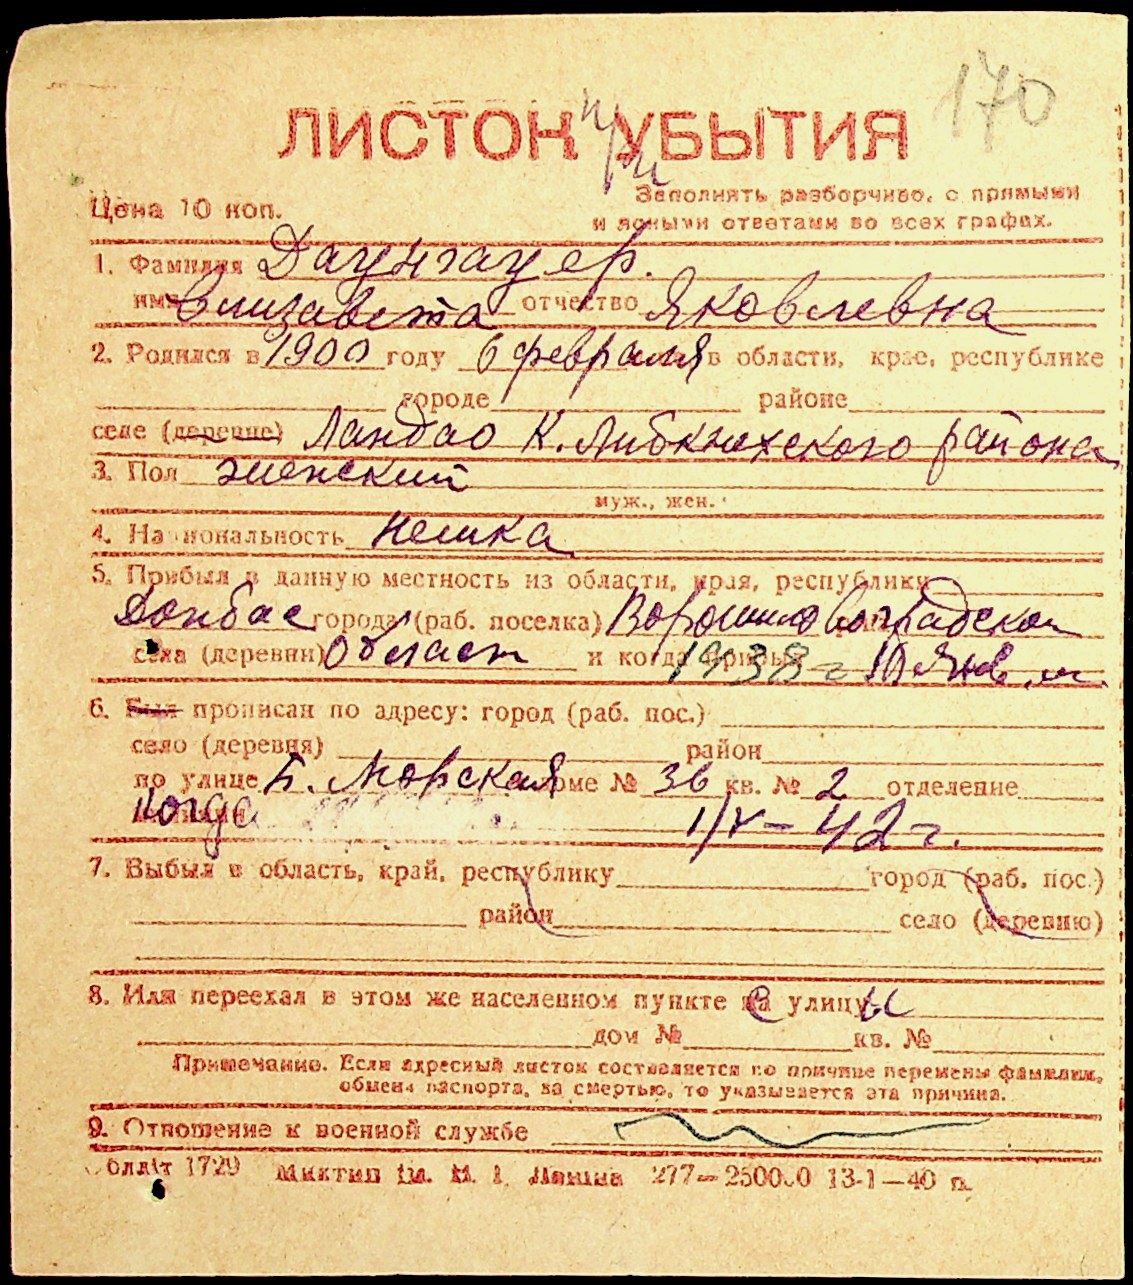 170
ЛИСТОК при УБЫТИЯ
Цена 10 коп.
Заполнять разборчиво, с прямыми
и ясными ответами во всех графах.
1. Фамилия Даунгауер.
имя Елизавета отчество Яковлевна
2. Родился в 1900 году 6 февраля в области, крае, республике
городе районе
селе (деревне) Ландао К. Либкнехского района
3. Пол женский
муж., жен.
4. Национальность немка
5. Прибыл в данную местность из области, края, республики
Донбас города (раб. поселка) Ворошиловградской
села (деревни) Област и когда прибыл 1938 г 10 янв.
6. Был прописан по адресу: город (раб. пос.)
село (деревня) район
по улице Б. Морская доме № 36 кв. № 2 отделение
когда 1/V-42 г.
7. Выбыл в область, край, республику город (раб. пос.)
район село (деревню)
8. Или переехал в этом же населенном пункте с улицы
дом № кв. №
Примечание. Если адресный листок составляется по причине перемены фамилии,
обмена паспорта, за смертью, то указывается эта причина.
9. Отношение к военной службе
Облліт 1729 277—250000 13-1—40 п.